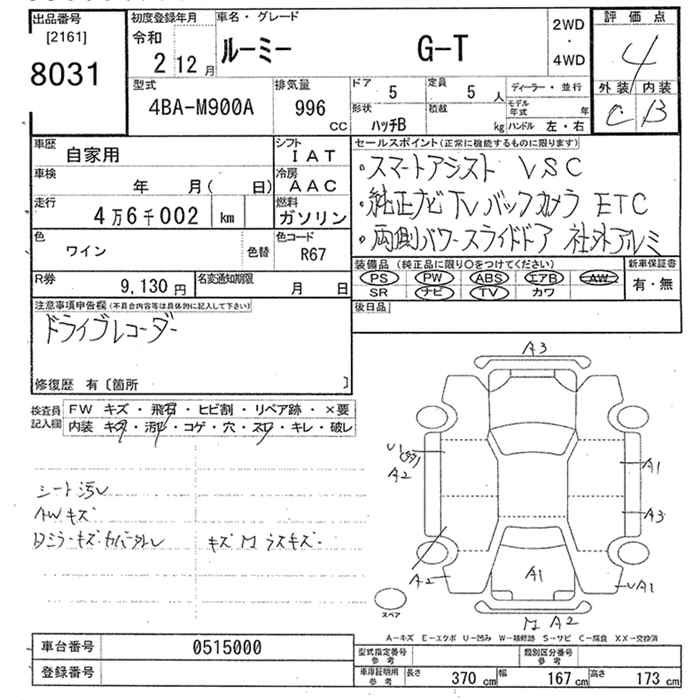 出品番号
[2161]
8031
初度登録年月
令和
2 12 月
車名・グレード
ルーミー G-T
2WD
・
4WD
評価点
4
外装 内装
C B
型式
4BA-M900A
排気量
996
CC
ドア
5
定員
5 人
ディーラー・並行
形状
ハッチB
積載
kg
モデル年式 年
ハンドル 左・右
車歴
自家用
シフト
IAT
車検
年 月( 日)
冷房
AAC
走行
4万6千002 km
燃料
ガソリン
色
ワイン
色替
色コード
R67
R券
9,130 円
名変通知期限
月 日
セールスポイント(正常に機能するものに限ります)
・スマートアシスト VSC
・純正ナビTVバックカメラ ETC
・両側パワースライドドア 社外アルミ
装備品(純正品に限り○をつけてください)
PS PW ABS エアB AW
SR ナビ TV カワ
新車保証書
有・無
後日品
注意事項申告欄(不具合内容等は具体的に記入して下さい)
ドライブレコーダー
修復歴 有〔箇所 〕
検査員記入欄
FW キズ・飛石・ヒビ割・リペア跡・×要
内装 キタ・汚レ・コゲ・穴・スレ・キレ・破レ
シート汚レ
AWキズ
キズ
A3
A2
A1
A3
A2
A1
A1
A2
スペア
A-キズ E-エクボ U-凹み W-補修跡 S-サビ C-腐食 XX-交換済
車台番号
0515000
登録番号
型式指定番号
参考
類別区分番号
参考
車庫証明用
参考
長さ 370 cm 幅 167 cm 高さ 173 cm